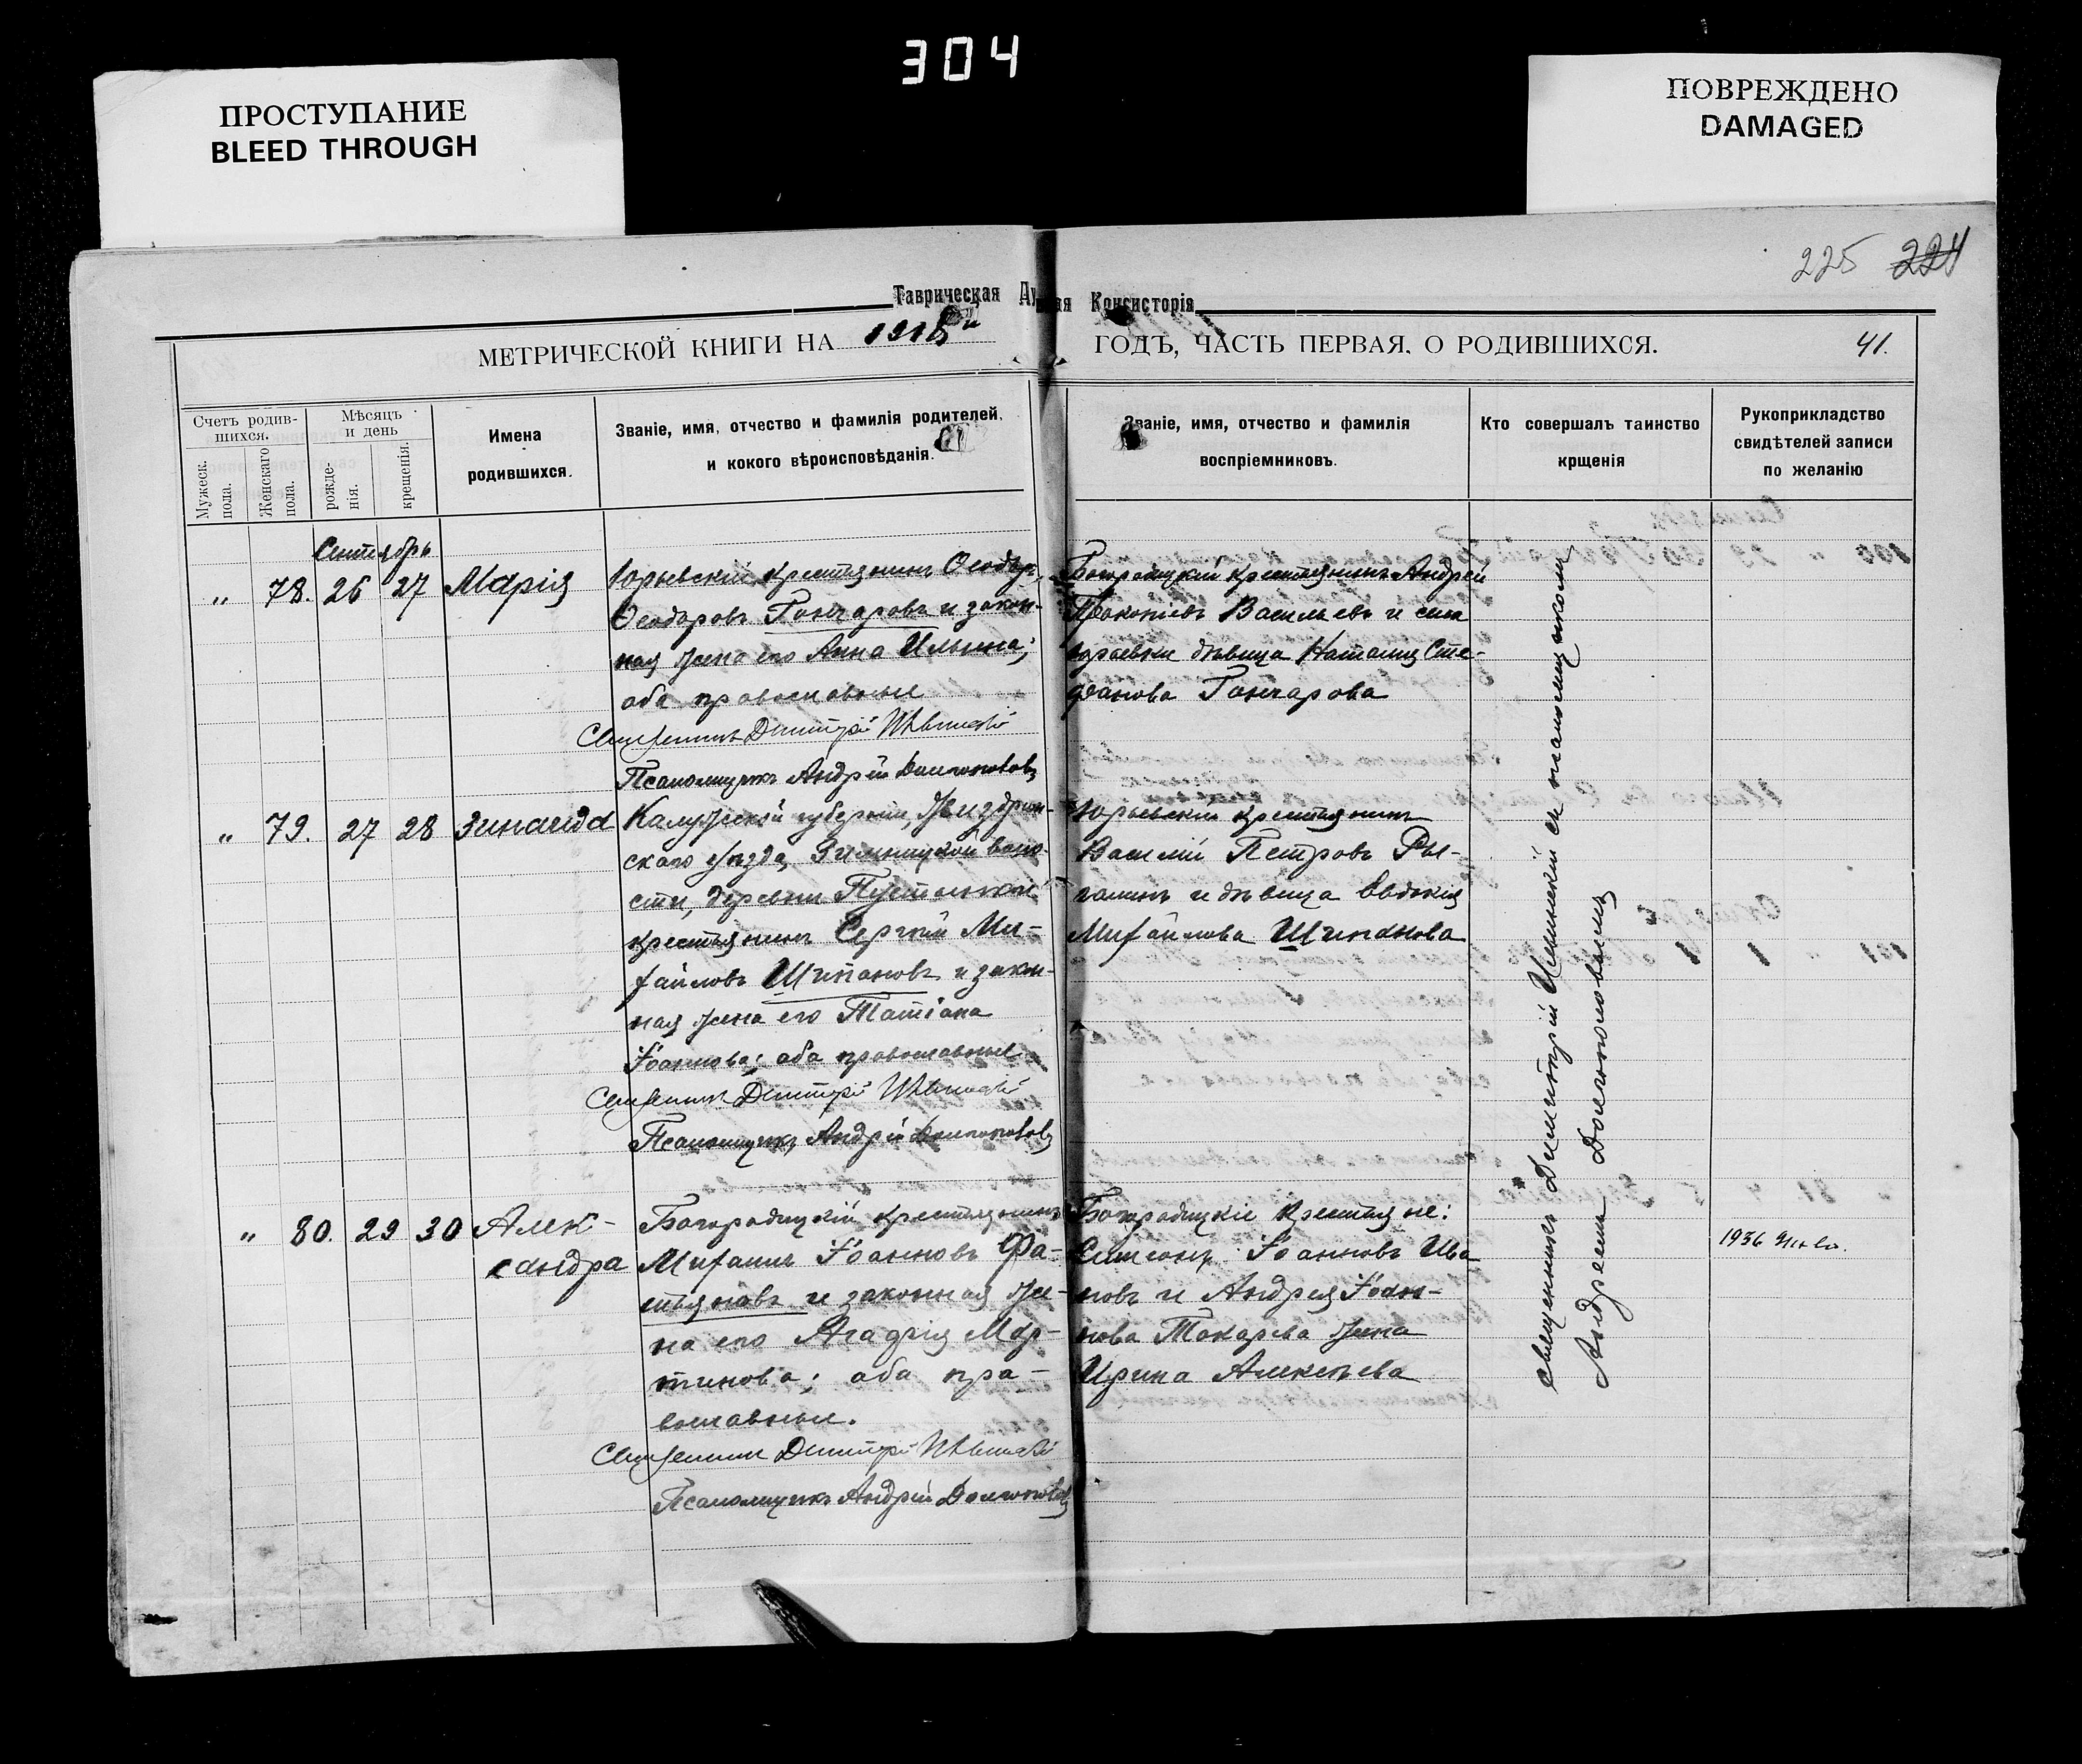 304
ПРОСТУПАНИЕ
BLEED THROUGH
ПОВРЕЖДЕНО
DAMAGED
225 224
Таврическая Ду ная Консисторія
МЕТРИЧЕСКОЙ КНИГИ НА 1918й ГОДЪ, ЧАСТЬ ПЕРВАЯ, О РОДИВШИХСЯ. 41.
Счетъ родив-
шихся.
Мужеск.
пола.
Женскаго
пола.
Мѣсяцъ
и день
рожде-
нія.
крещенія.
Имена
родившихся.
Званіе, имя, отчество и фамилія родителей,
и кокого вѣроисповѣданія.
Званіе, имя, отчество и фамилія
воспріемниковъ.
Кто совершалъ таинство
крщенія
Рукоприкладство
свидѣтелей записи
по желанію
Сентябрь
„ 78. 26 27 Марія
Юрьевскій крестьянинъ Ѳеодоръ
Ѳеодоровъ Гончаровъ и закон-
ная жена его Анна Ильина;
оба православные
Священникъ Димитрій
Псаломщикъ Андрей Долгополовъ
Богородицкій крестьянинъ Андрей
Прокопіевъ Васильевъ и села
Юрьевки дѣвица Наталия Сте-
фанова Гончарова
„ 79. 27 28 Зинаида
Калужской губерніи, Жиздрин-
скаго уѣзда, воло-
сти, деревни
крестьянинъ Сергѣй Ми-
хайловъ Щипановъ и закон-
ная жена его Татіана
Іоаннова; оба православные
Священникъ Димитрій
Псаломщикъ Андрей Долгополовъ
Юрьевскій крестьянинъ
Василій Петровъ Ры-
галинъ и дѣвица Евдокія
Михайлова Щипанова
„ 80. 29 30 Алек-
сандра
Богородицкій крестьянинъ
Михаилъ Іоанновъ Фа-
тьяновъ и законная же-
на его Агафія Мар-
тинова; оба пра-
вославные.
Священникъ Димитрій
Псаломщикъ Андрей Долгополовъ
Богородицкіе крестьяне:
Симеонъ Іоанновъ Ива
новъ и Андрея Іоан-
нова Токарева жена
Ирина Алексѣева
Священникъ Димитрій съ псаломщикомъ
Андреемъ Долгополовымъ
1936